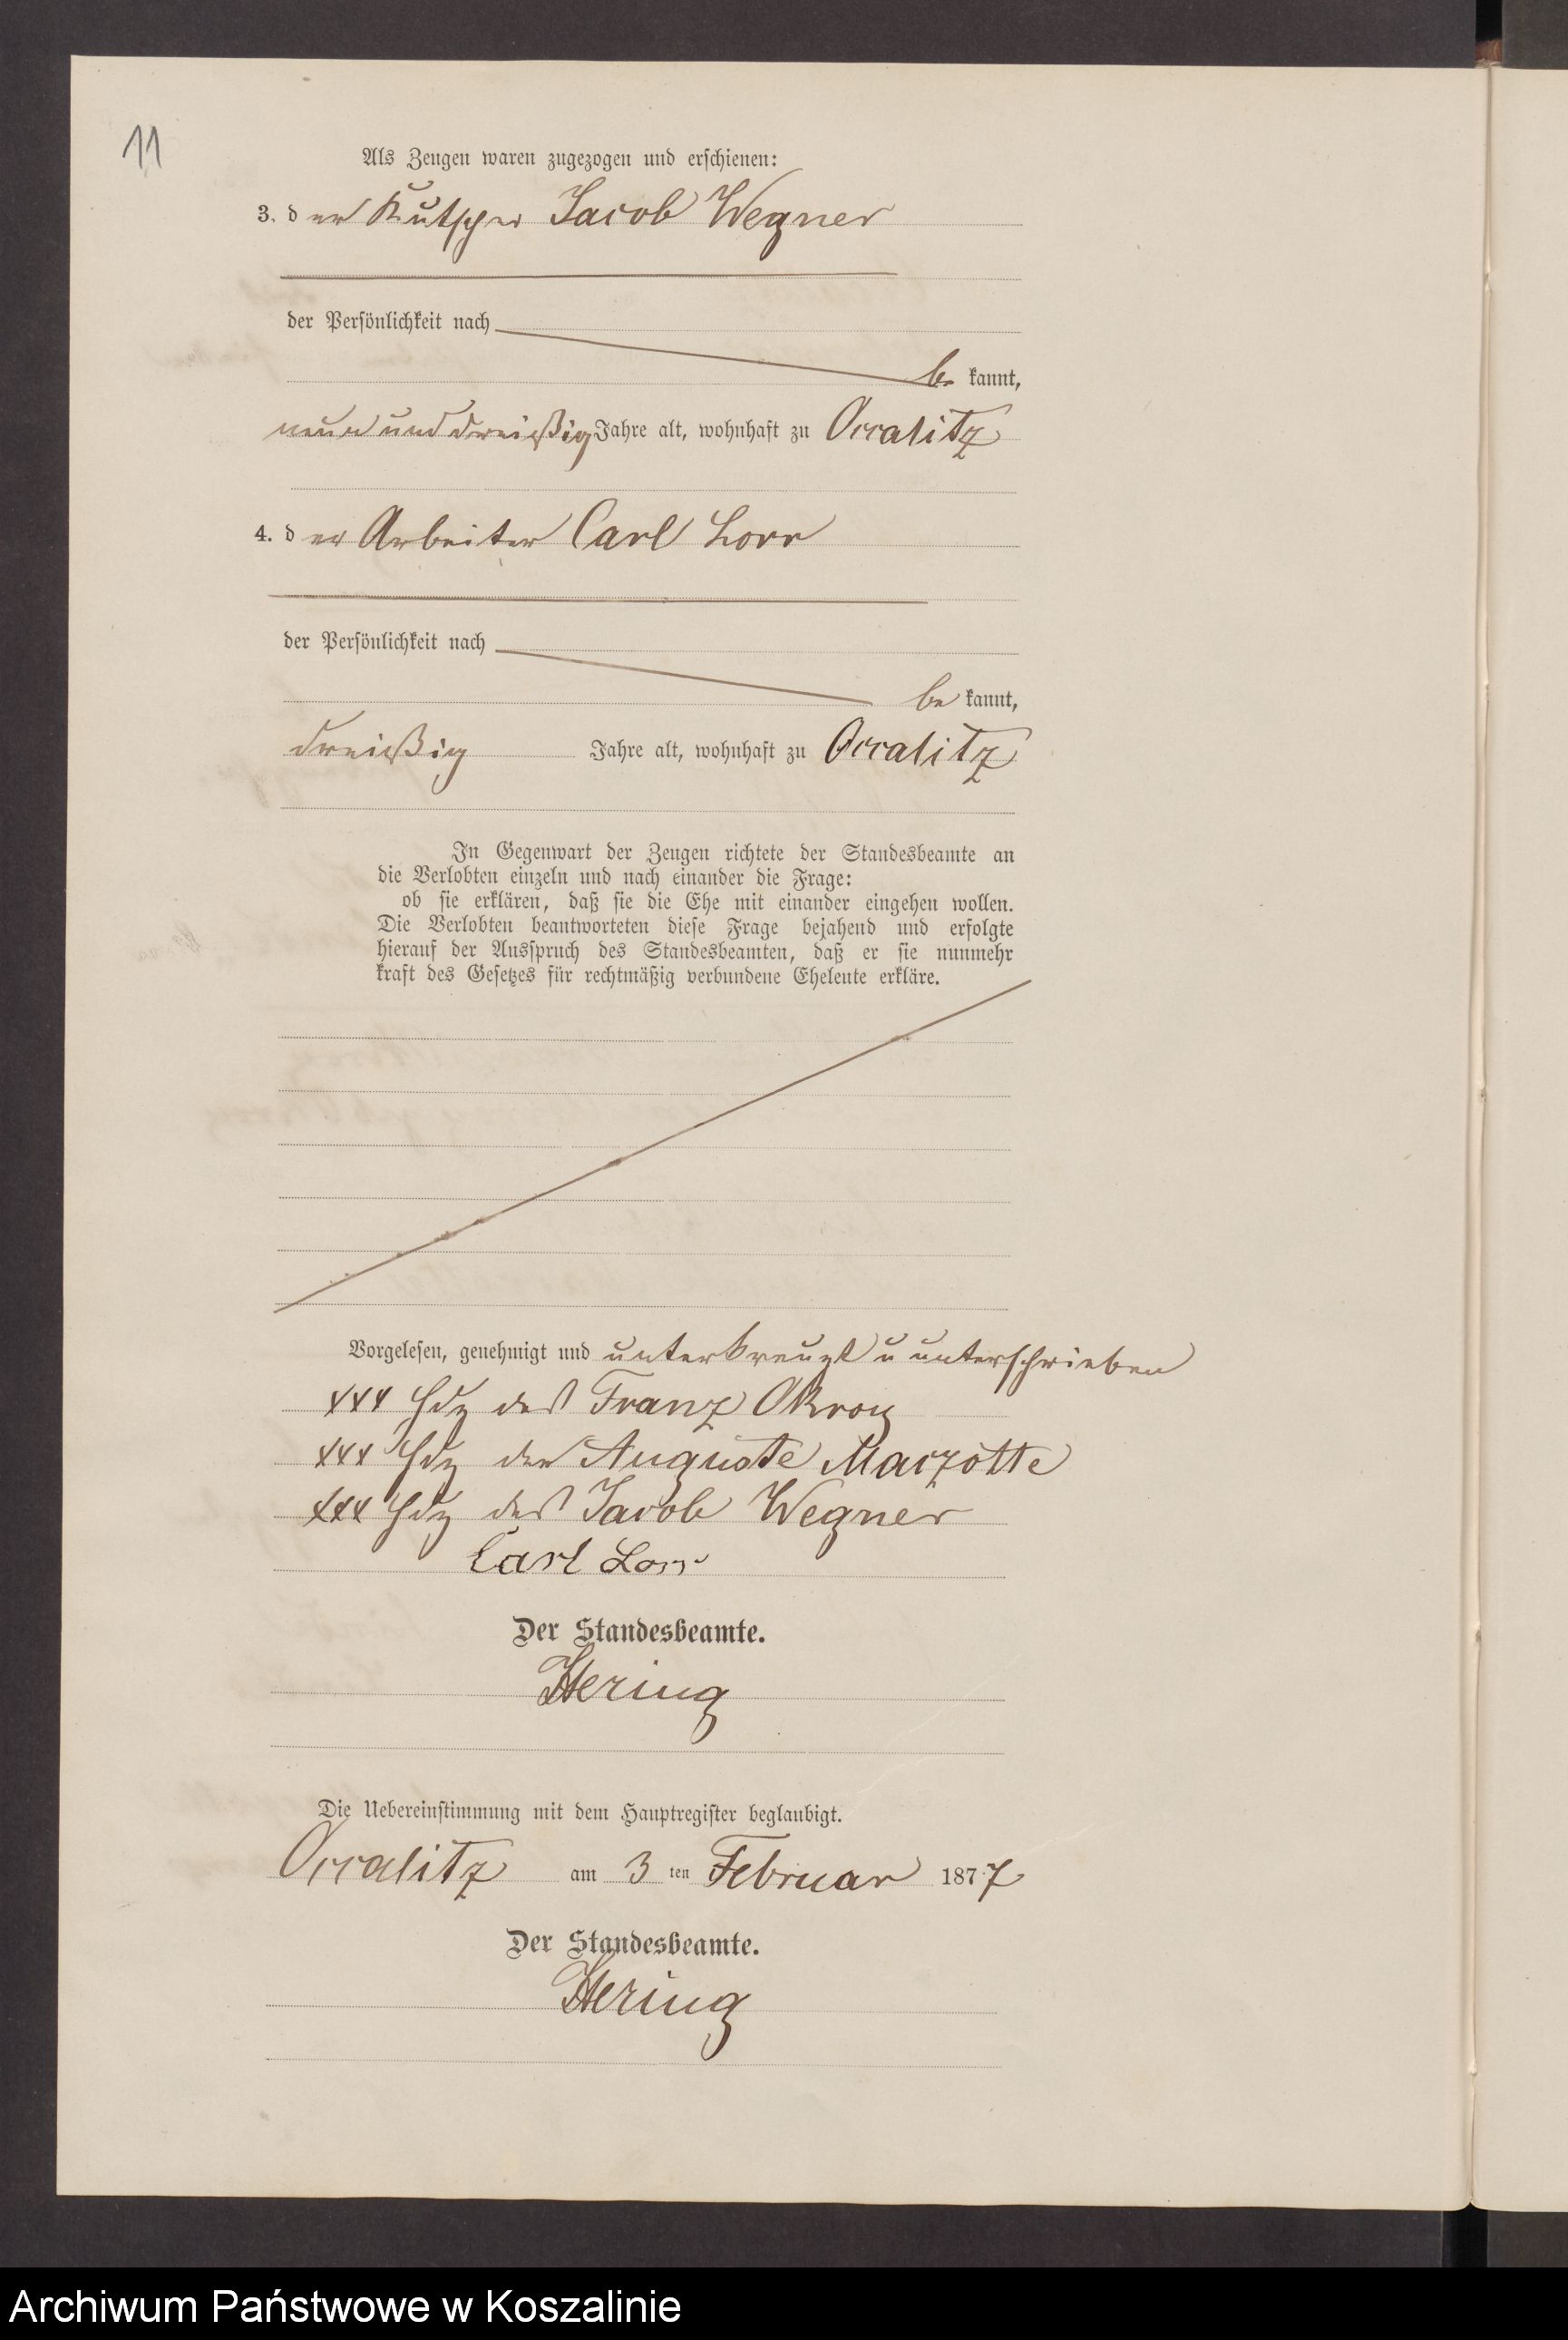 11
Als Zeugen waren zugezogen und erschienen:
3. der Kutscher Jacob Wegner
der Persönlichkeit nach
be kannt,
neun und dreißig Jahre alt, wohnhaft zu Occalitz
4. der Arbeiter Carl Lorr
der Persönlichkeit nach
be kannt,
dreißig Jahre alt, wohnhaft zu Occalitz
In Gegenwart der Zeugen richtete der Standesbeamte an
die Verlobten einzeln und nach einander die Frage:
ob sie erklären, daß sie die Ehe mit einander eingehen wollen.
Die Verlobten beantworteten diese Frage bejahend und erfolgte
hierauf der Ausspruch des Standesbeamten, daß er sie nunmehr
kraft des Gesetzes für rechtmäßig verbundene Eheleute erkläre.
Vorgelesen, genehmigt und unterkreuzt u unterschrieben
xxx Hdz des Franz Okroy
xxx Hdz der Auguste Marzotte
xxx Hdz des Jacob Wegner
Carl Lorr
Der Standesbeamte.
Hering
Die Uebereinstimmung mit dem Hauptregister beglaubigt.
Occalitz am 3 ten Februar 1877
Der Standesbeamte.
Hering
Archiwum Państwowe w Koszalinie